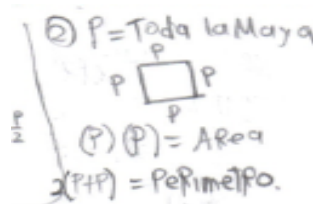 ② P = Toda la Maya
P
P P
P
P/2
(P) (P) = AReA
2(P+P) = PeRimetRo.